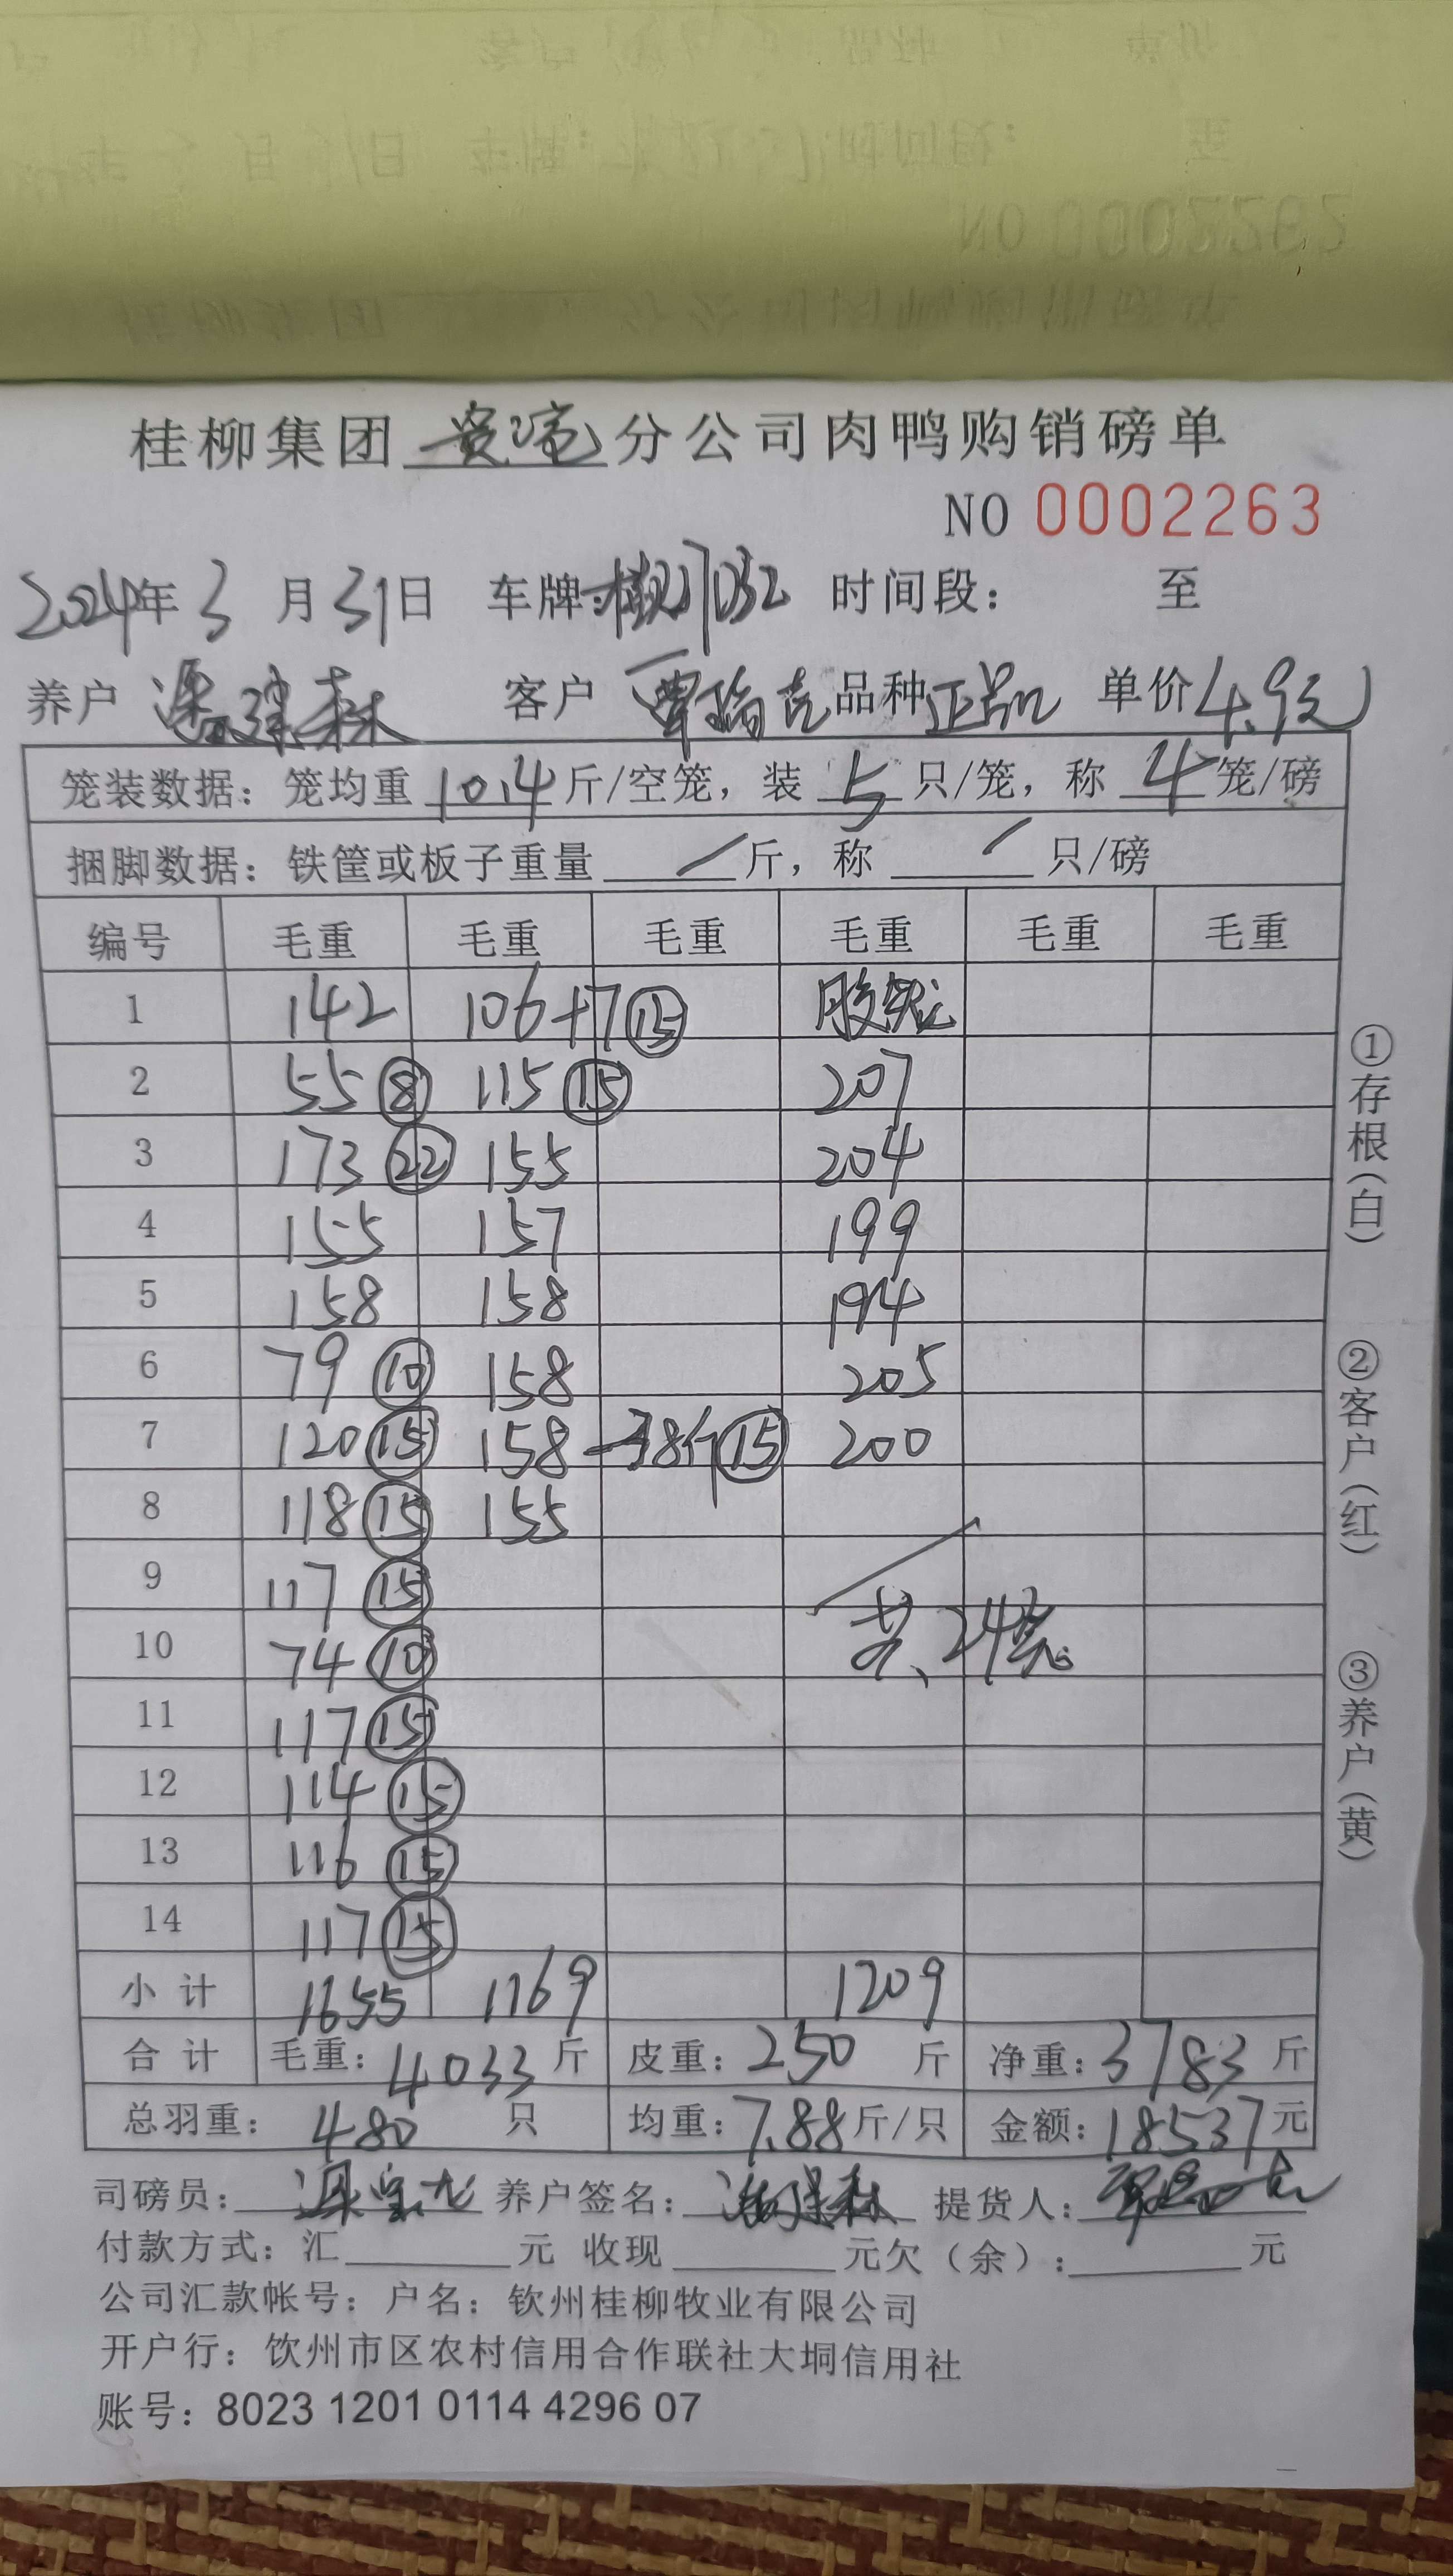 NO 0002262
桂柳集团 贵港 分公司肉鸭购销磅单
NO 0002263
2024年 3 月 31日 车牌: 时间段: 至
养户 客户 覃瑞克 品种 正品 单价 4.9元
笼装数据: 笼均重 10.4 斤/空笼, 装 5 只/笼, 称 4 笼/磅
捆脚数据: 铁筐或板子重量 / 斤, 称 / 只/磅
编号 毛重 毛重 毛重 毛重 毛重 毛重
1 142 106+7 ⑮ 胶笼
2 55 ⑧ 115 ⑮ 207
3 173 ㉒ 155 204
4 155 157 199
5 158 158 194
6 79 ⑩ 158 205
7 120 ⑮ 158 38斤 ⑮ 200
8 118 ⑮ 155
9 117 ⑮
10 74 ⑩ 共、24笼
11 117 ⑮
12 114 ⑮
13 116 ⑮
14 117 ⑮
小计 1655 1169 1209
合计 毛重: 4033 斤 皮重: 250 斤 净重: 3783 斤
总羽重: 480 只 均重: 7.88 斤/只 金额: 18537 元
司磅员: 养户签名: 提货人:
付款方式: 汇 元 收现 元欠(余): 元
公司汇款帐号: 户名: 钦州桂柳牧业有限公司
开户行: 钦州市区农村信用合作联社大垌信用社
账号: 8023 1201 0114 4296 07
①存根(白)
②客户(红)
③养户(黄)